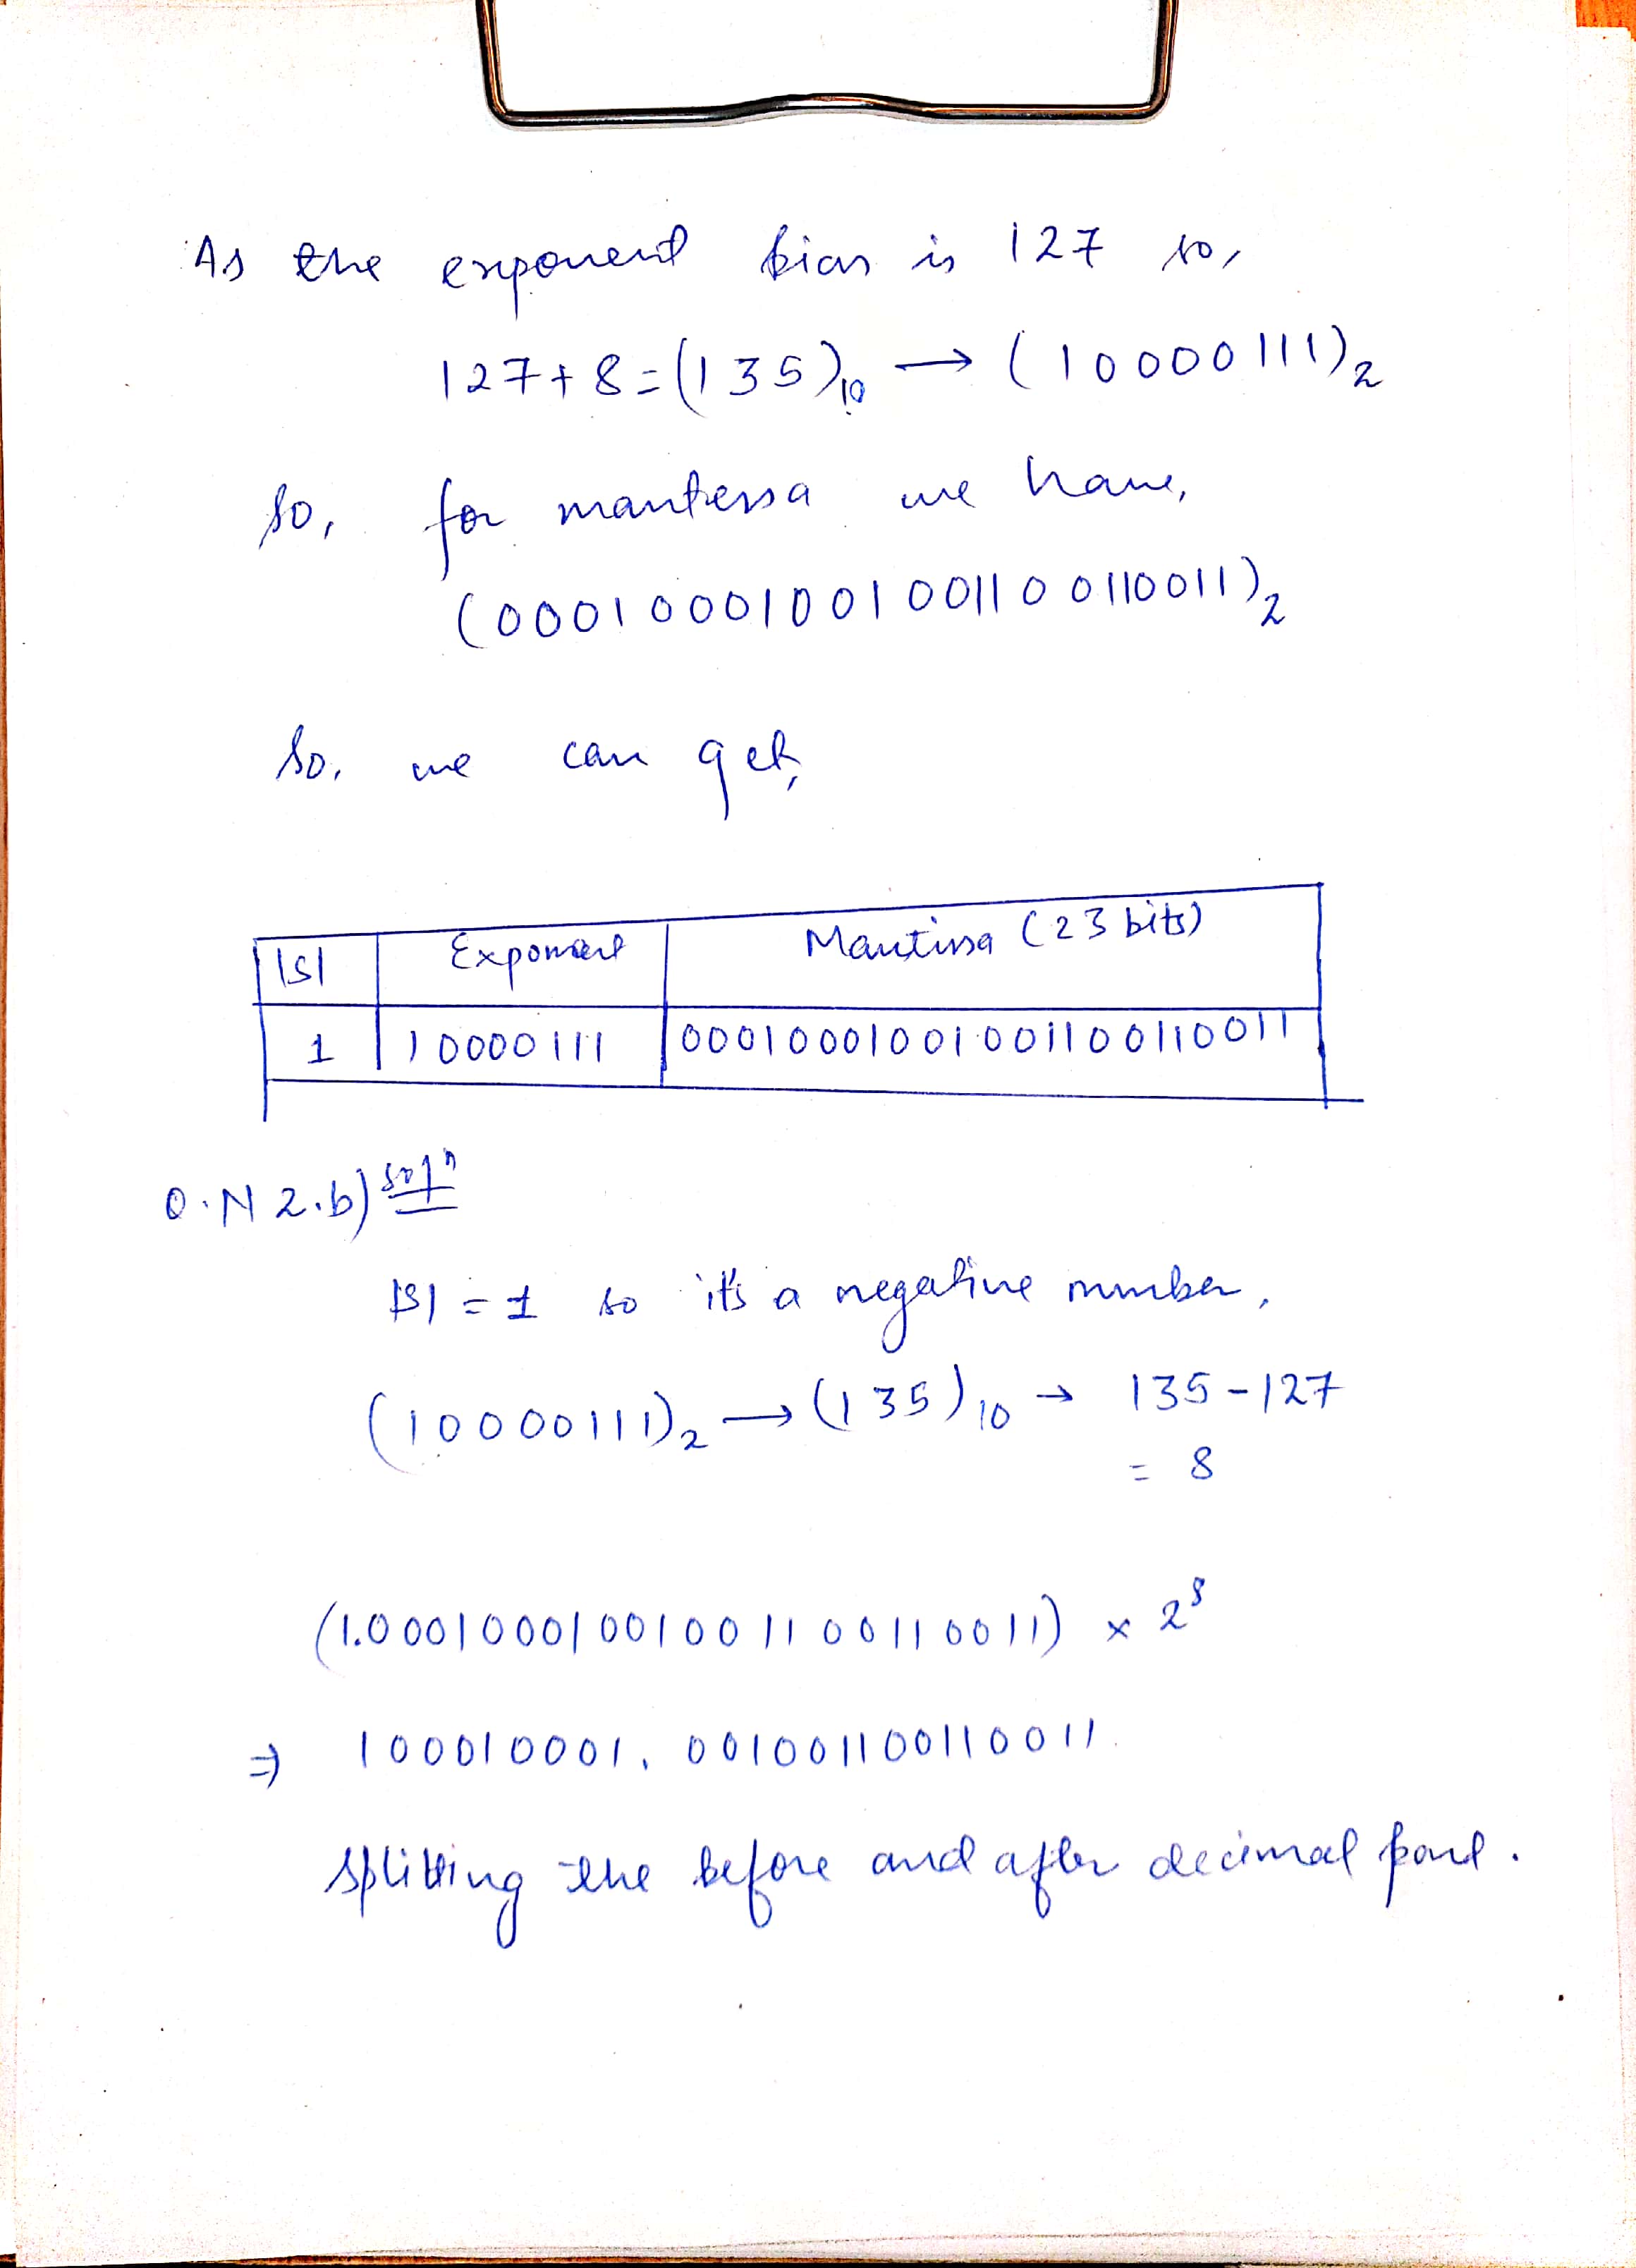 As the exponent bias is 127 so,
127+8=(135)₁₀ → (10000111)₂
so, for mantessa we have,
(00010001001001100110011)₂
so, we can get,
|S| Exponent Mantissa (23 bits)
1 10000111 00010001001001100110011
Q.N 2.b) solⁿ
|S| = 1 so it's a negative number,
(10000111)₂ → (135)₁₀ → 135-127
= 8
(1.00010001001001100110011) × 2⁸
⇒ 100010001.001001100110011.
splitting the before and after decimal part.